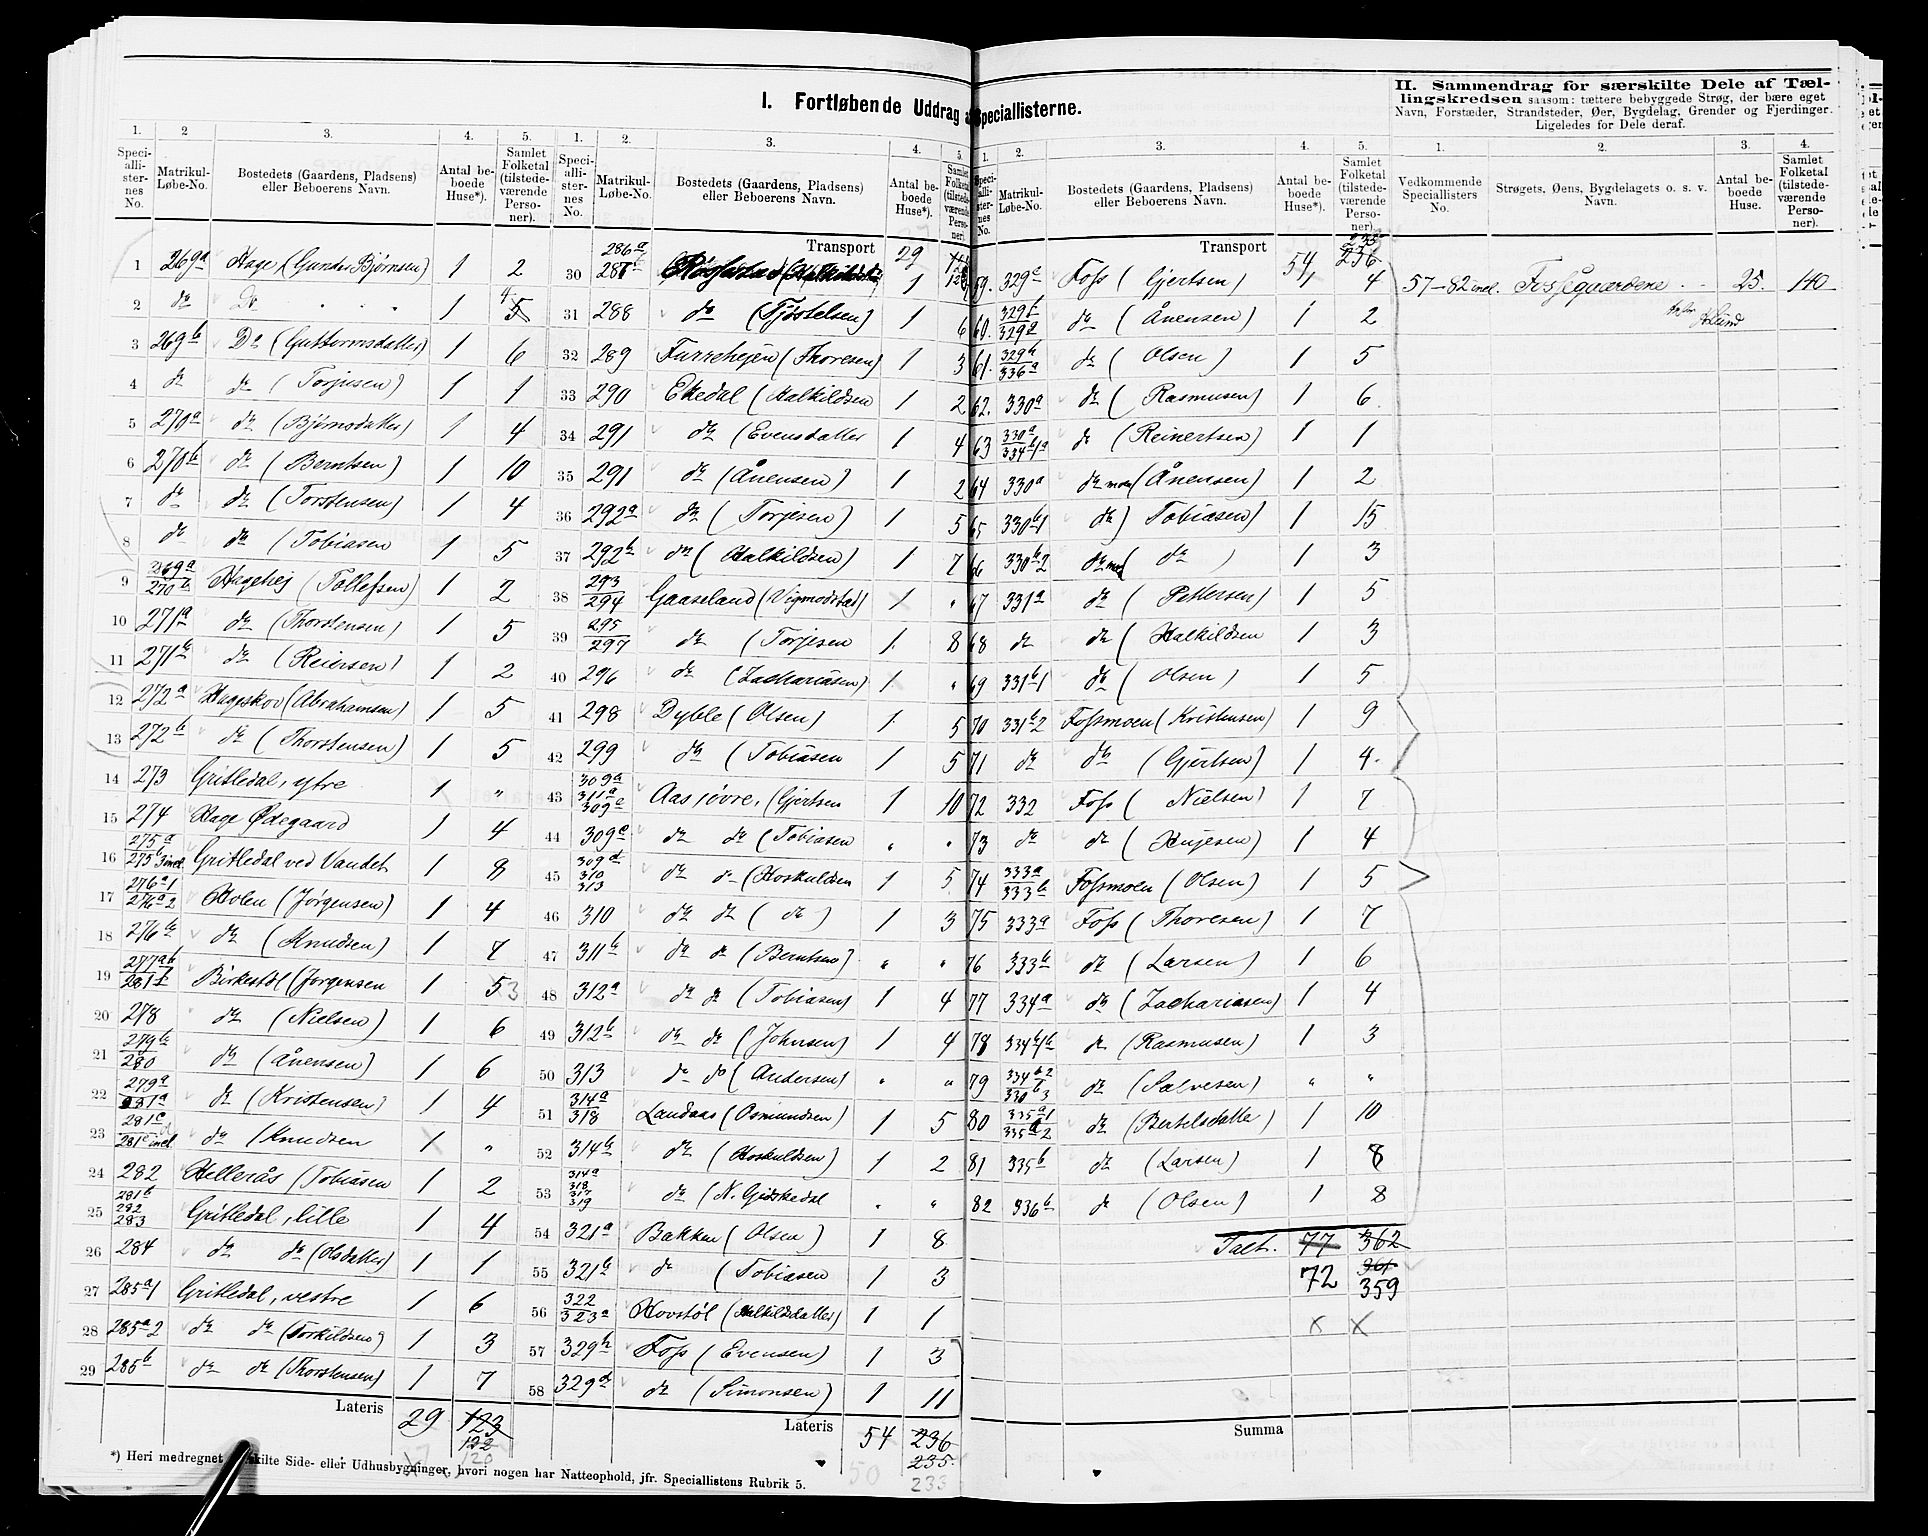 I. Fortløbende Uddrag af Speciallisterne.
II. Sammendrag for særskilte Dele af Tæl-
lingskredsen saasom: tættere bebyggede Strøg, der bære eget
Navn, Forstæder, Strandsteder, Øer, Bygdelag, Grender og Fjerdinger.
Ligeledes for Dele deraf.
1. 2 3. 4. 5.
Speci-allister-nes No. Matrikul-Løbe-No. Bostedets (Gaardens, Pladsens) eller Beboerens Navn. Antal be-boede Huse*). Samlet Folketal (tilstede-værende Perso-ner).
1 269a Hage (Gunder Bjørnsen) 1 2
2 do Do 1 4 5
3 269b Do (Guttormsdatter) 1 6
4 do do (Torjusen) 1 1
5 270a do (Bjørnsdatter) 1 4
6 270b do (Berntsen) 1 10
7 do do (Torstensen) 1 4
8 do do (Tobiasen 1 5
9 269a 270b Hagehej (Tollefsen) 1 2
10 271a do (Thorstensen) 1 5
11 271b do (Reiersen) 1 2
12 272a Hageskov (Abrahamsen) 1 5
13 272b do (Thorstensen) 1 5
14 273 Gritledal, ytre 1 "
15 274 Hage Ødegaard 1 4
16 275a 275b3incl. Gritledal ved Vandet 1 8
17 276a1 276a2 Holen (Jørgensen) 1 4
18 276b do (Knudsen) 1 7
19 277ab 281f Birkestøl (Jørgensen 1 5 3
20 278 do (Nielsen) 1 6
21 279b 280 do (Ånensen) 1 6
22 279a 281a do (Kristensen) 1 4
23 281c 281e incl. do (Knudsen 1 "
24 282 Hellerås (Tobiasen 1 2
25 281b 282 283 Gritledal, lille 1 4
26 284 do do (Olsdatter) 1 1
27 285a1 Gritledal, vestre 1 6
28 285a2 do do (Torkildsen) 1 3
29 285b do do (Thorstensen) 1 7
Lateris 29 123
122
120
*) Heri medregnet skilte Side- eller Udhusbygninger, hvori nogen har Natteophold, jfr. Speciallistens Rubrik 5.
1. 2. 3. 4. 5.
Speci-allister-nes No. Matrikul-Løbe-No. Bostedets (Gaardens, Pladsens) eller Beboerens Navn. Antal be-boede Huse*). Samlet Folketal (tilstede-værende Perso-ner)
Transport 29
30 286a 287 1
31 288 do (Tjøstelsen) 1 6
32 289 Furrehejen (Thoresen) 1 3
33 290 Ekedal (Halkildsen 1 2
34 291 do (Evensdatter 1 4
35 291 do (Ånensen) 1 2
36 292a do (Torjesen) 1 5
37 292b do (Halkildsen) 1 7
38 293 294 Gaaseland (Vigmodstad) 1 "
39 295 297 do (Torjesen 1 8
40 296 do (Zachariasen) 1 "
41 298 Dyble (Olsen) 1 5
42 299 do (Tobiasen 1 5
43 309a 311a 309e Aas, øvre, (Gjertsen 1 10
44 309c do do (Tobiasen " "
45 309d 310 313 do do (Hoskuldsen 1 5
46 310 do do (do) 1 3
47 311b do do (Berntsen) " "
48 312a do do (Tobiasen) 1 4
49 312b do do (Johnsen) 1 4
50 313 do do (Andersen) " "
51 314a 318 Landaas (Osmundsen) 1 5
52 314b do (Hoskuldsen) 1 2
53 314a 318 317 319 do (N. Gidskedal " "
54 321a Bakken (Olsen) 1 8
55 321b do (Tobiasen 1 3
56 322 323a Hovstøl (Halkildsdatter) 1 1
57 329b Foss (Evensen) 1 3
58 329d do (Simonsen) 1 11
Lateris 54 236
50 235
233
1. 2. 3. 4. 5.
Speci-allister-nes No. Matrikul-Løbe-No. Bostedets (Gaardens, Pladsens) eller Beboerens Navn. Antal be-boede Huse*). Samlet Folketal (tilstede-værende Perso-ner).
Transport 54 235 236
59. 329e Foss (Gjertsen) 1 4
60. 329f 329g do (Ånensen) 1 2
61. 329h 336a do (Olsen) 1 5
62. 330a do (Rasmusen) 1 6
63 330a 334b1a do (Reinertsen) 1 1
64 330a do moen (Ånensen) 1 2
65 330b1 do) Tobiasen) 1 15
66 330b2 do moen (do) 1 3
67 331a do (Pettersen) 1 5
68 do do (Halkildsen 1 3
69 331b1 do (Olsen) 1 5
70 331b2 Fossmoen (Kristensen) 1 9
71 do do (Gjertsen) 1 4.
72 332 Foss (Nielsen) 1 7
73 do do (Hujesen) 1 4
74 333a 333b Fossmoen (Olsen) 1 5
75 333a Foss (Thoresen) 1 7
76 333b do (Larsen) 1 6
77 334a do (Zachariasen) 1 4
78 334b1b do (Rasmusen) 1 3
79 334b2 330b3 do (Salvesen) " "
80 335a1 335a2 do (Bertelsdatter) 1 10
81 335b do (Larsen) 1 8
82 336b do (Olsen) 1 8
Talt. 77 362
361
72 359
x x
Summa
1. 2. 3. 4.
Vedkommende Speciallisters No. Strøgets, Øens, Bygdelagets o. s. v. Navn. Antal be-boede Huse. Samlet Folketal (tilstede-værende Perso-ner).
57-82 incl. Fossegaardene 25. 140